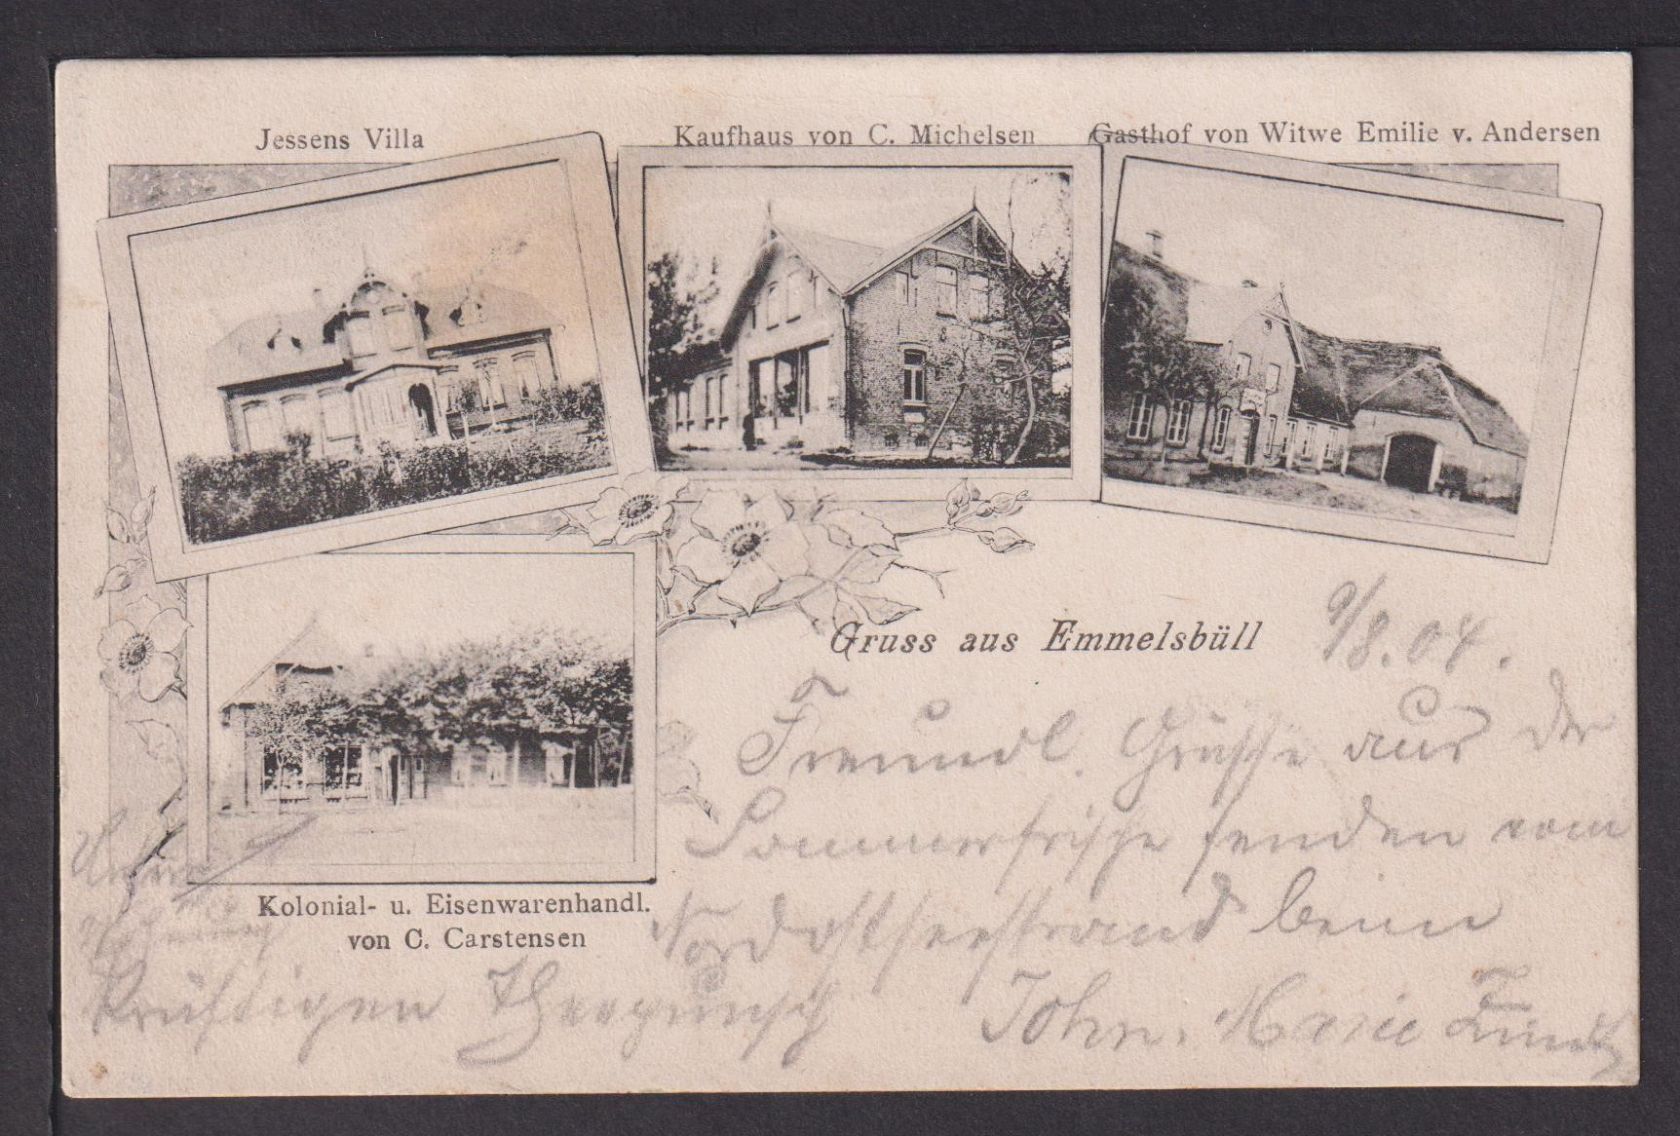 Jessens Villa
Kaufhaus von C. Michelsen
Gasthof von Witwe Emilie v. Andersen
Gruss aus Emmelsbüll
9/8.04.
Freundl. Grüsse aus der
Sommerfrische senden vom
Nordostseestrand beim
kräftigen Theepunsch
John, Marie
Kolonial- u. Eisenwarenhandl.
von C. Carstensen